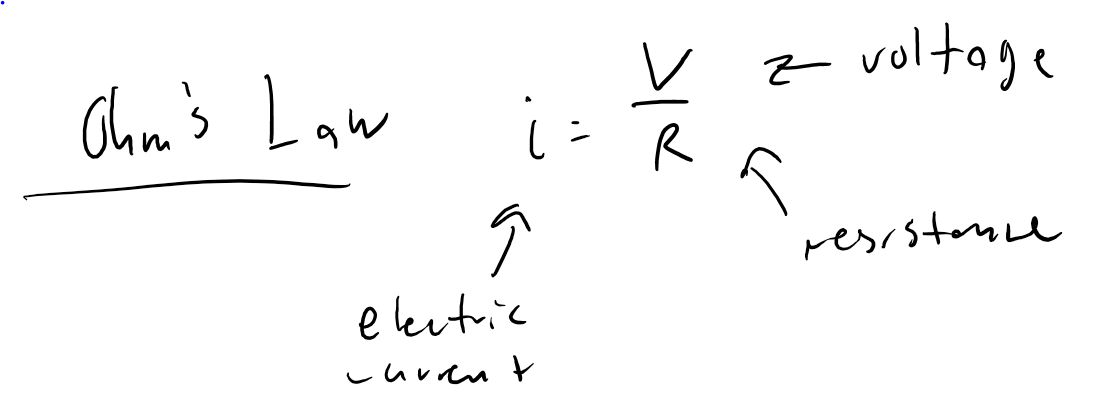 Ohm's Law
i = V/R
← voltage
resistance
electric
current